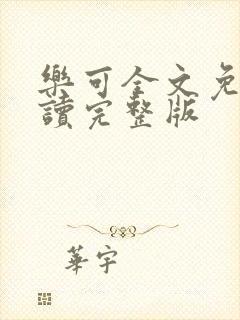 樂可全文免
讀完整版
華宇